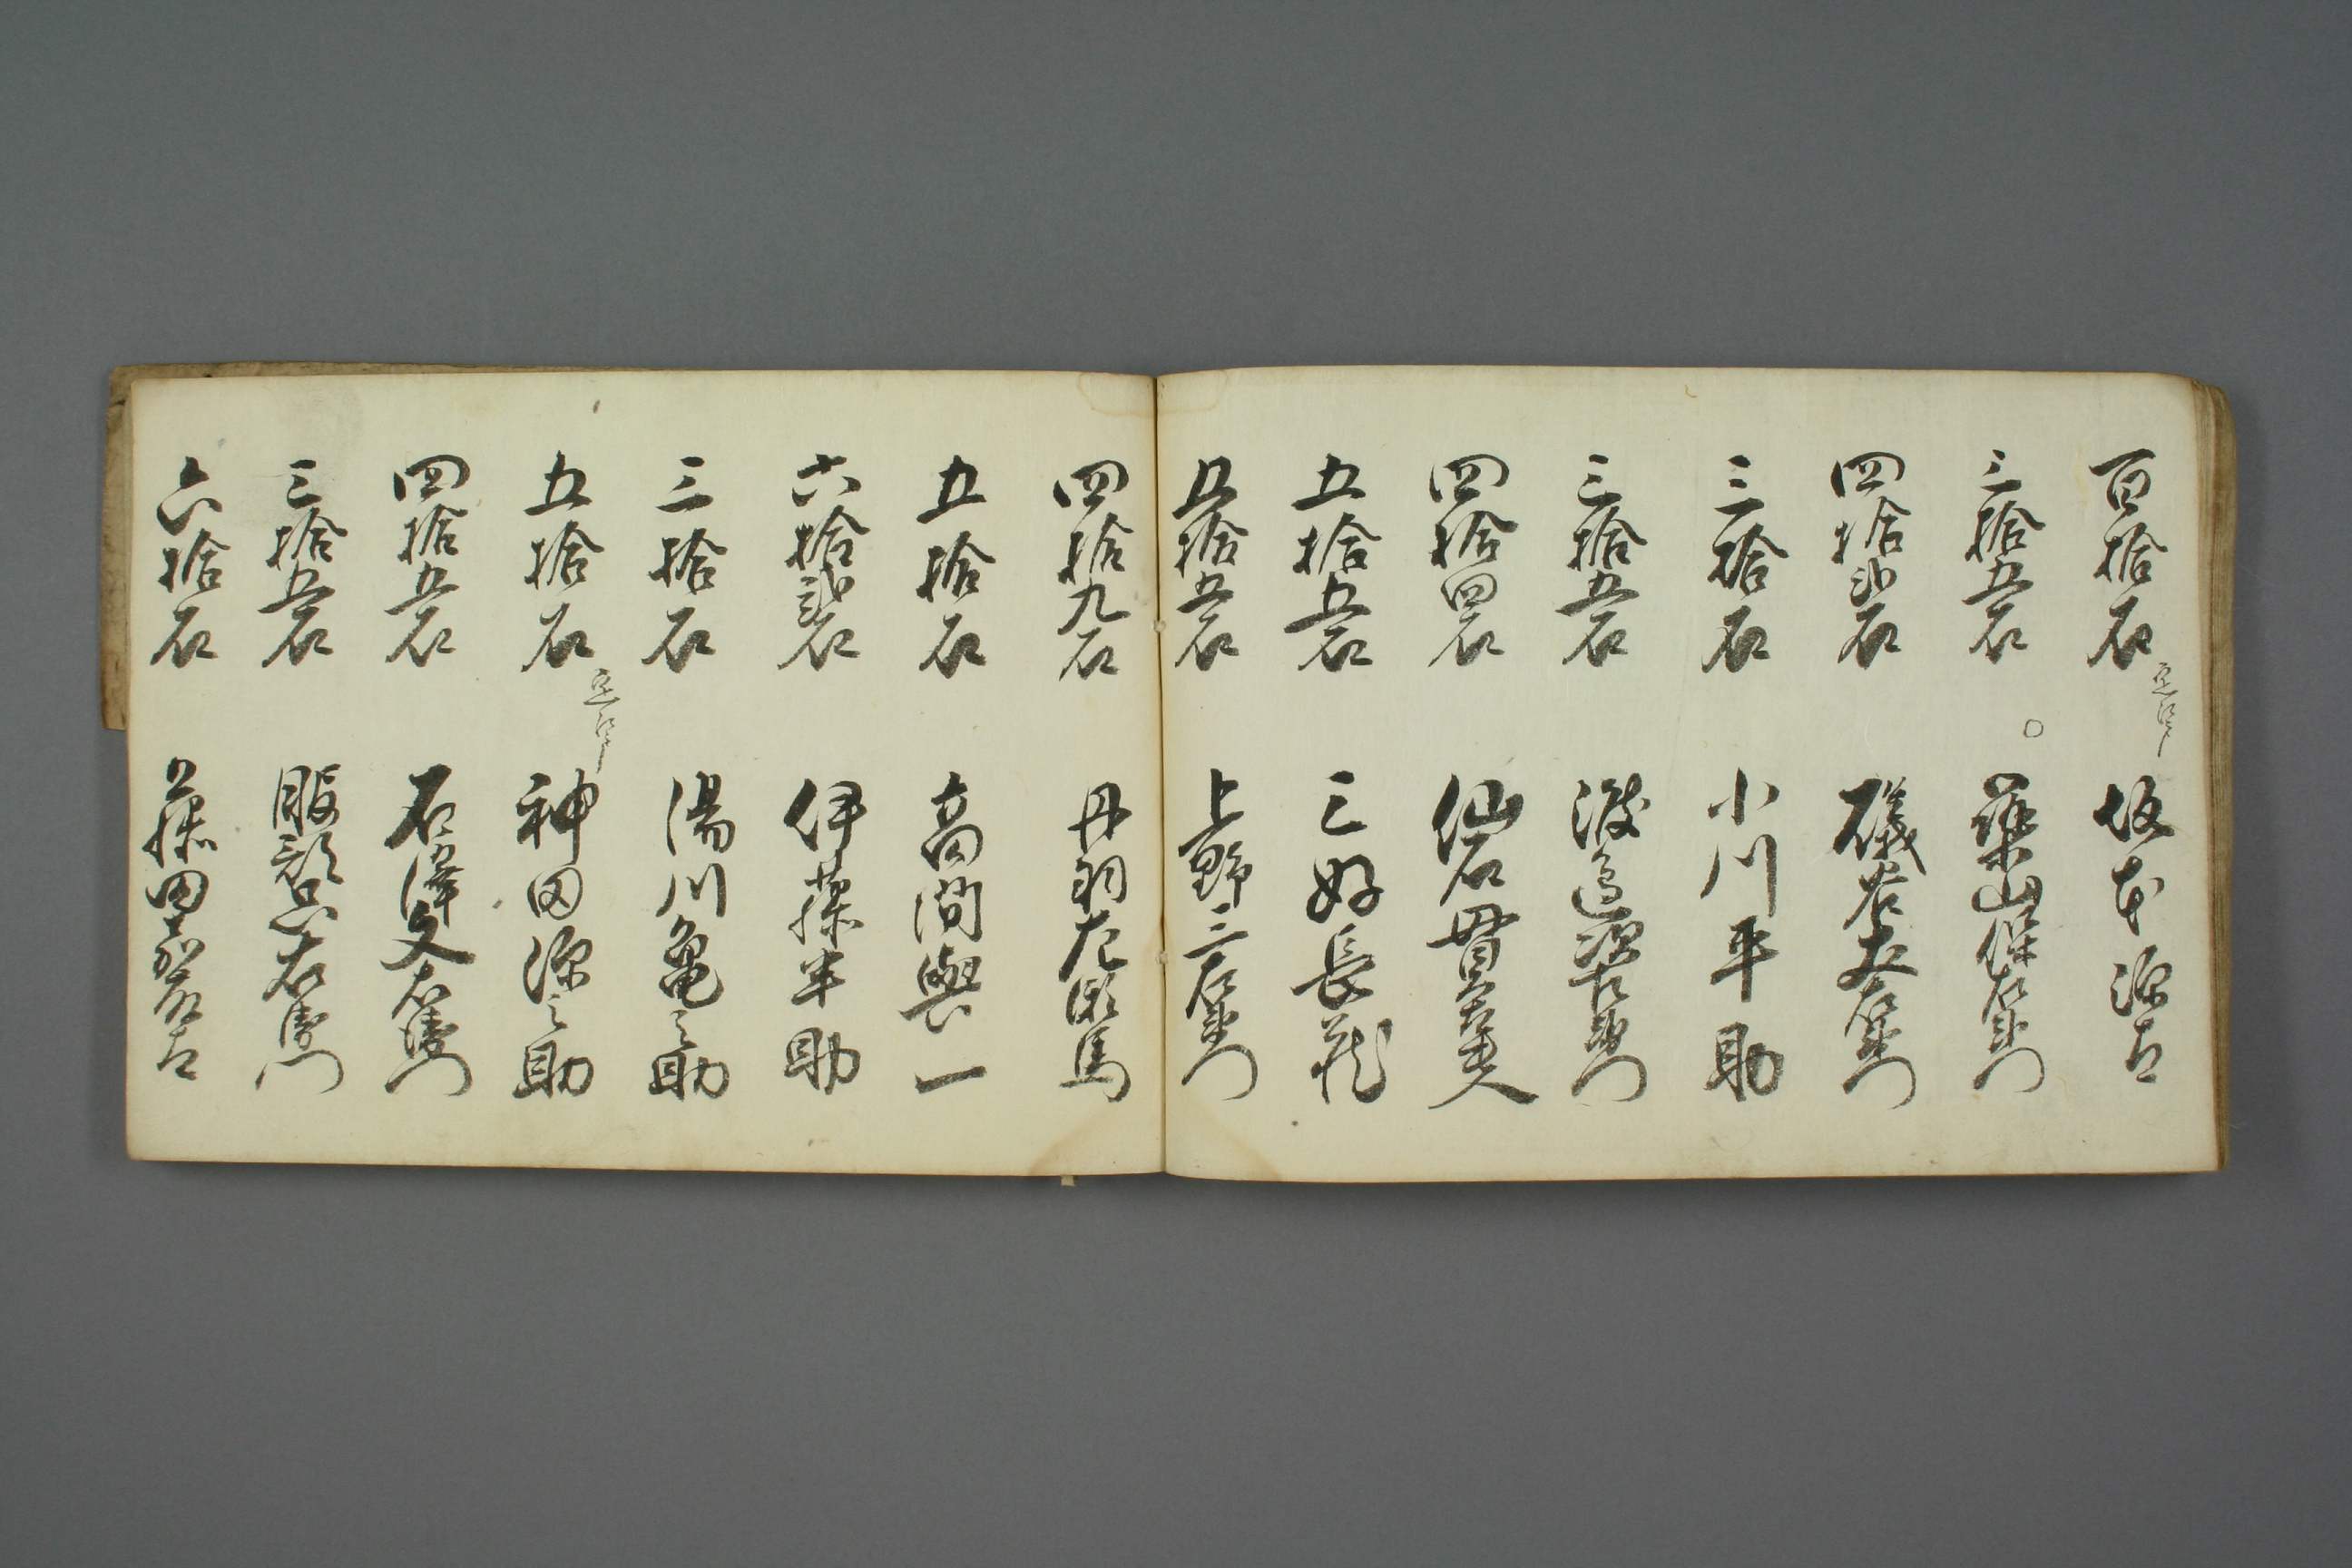 百拾石 坂本源吉
三拾五石 葉山保右衛門
四拾弐石 磯谷友右衛門
三拾石 小川平助
三拾五石 渡邊源右衛門
四拾四石 仙石貫太夫
五拾五石 三好長蔵
五拾五石 上野三右衛門
四拾九石 丹羽左馬
五拾石 高間與一
六拾弐石 伊藤半助
三拾石 湯川亀之助
五拾石 神田源之助
四拾五石 石澤文右衛門
三拾五石 服部忠右衛門
六拾石 藤田嘉右